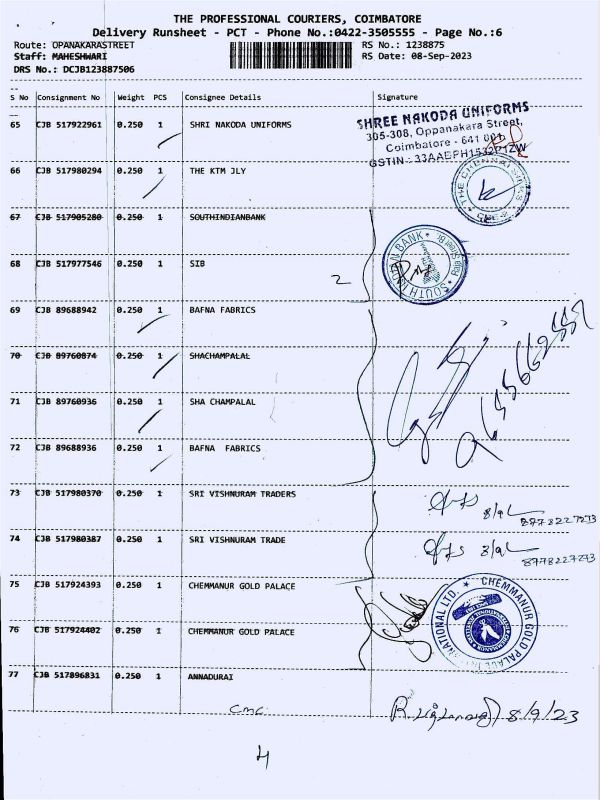 THE PROFESSIONAL COURIERS, COIMBATORE
Delivery Runsheet - PCT - Phone No.:0422-3505555 - Page No.:6
Route: OPANAKARASTREET RS No.: 1238875
Staff: MAHESHWARI RS Date: 08-Sep-2023
DRS No.: DCJB123887506
--
S No Consignment No Weight PCS Consignee Details Signature
--
65 CJB 517922961 0.250 1 SHRI NAKODA UNIFORMS
SHREE NAKODA UNIFORMS
305-308, Oppanakara Street,
Coimbatore - 641 001
66 CJB 517980294 0.250 1 THE KTM JLY
67 CJB 517905280 0.250 1 SOUTHINDIANBANK
68 CJB 517977546 0.250 1 SIB
2
69 CJB 89688942 0.250 1 BAFNA FABRICS
70 CJB 89760874 0.250 1 SHACHAMPALAL
71 CJB 89760936 0.250 1 SHA CHAMPALAL
72 CJB 89688936 0.250 1 BAFNA FABRICS
73 CJB 517980370 0.250 1 SRI VISHNURAM TRADERS
8778227273
74 CJB 517980387 0.250 1 SRI VISHNURAM TRADE
8778227273
75 CJB 517924393 0.250 1 CHEMMANUR GOLD PALACE
CHEMMANUR GOLD PALACE
76 CJB 517924402 0.250 1 CHEMMANUR GOLD PALACE
77 CJB 517896831 0.250 1 ANNADURAI
CMC
8/9/23
4